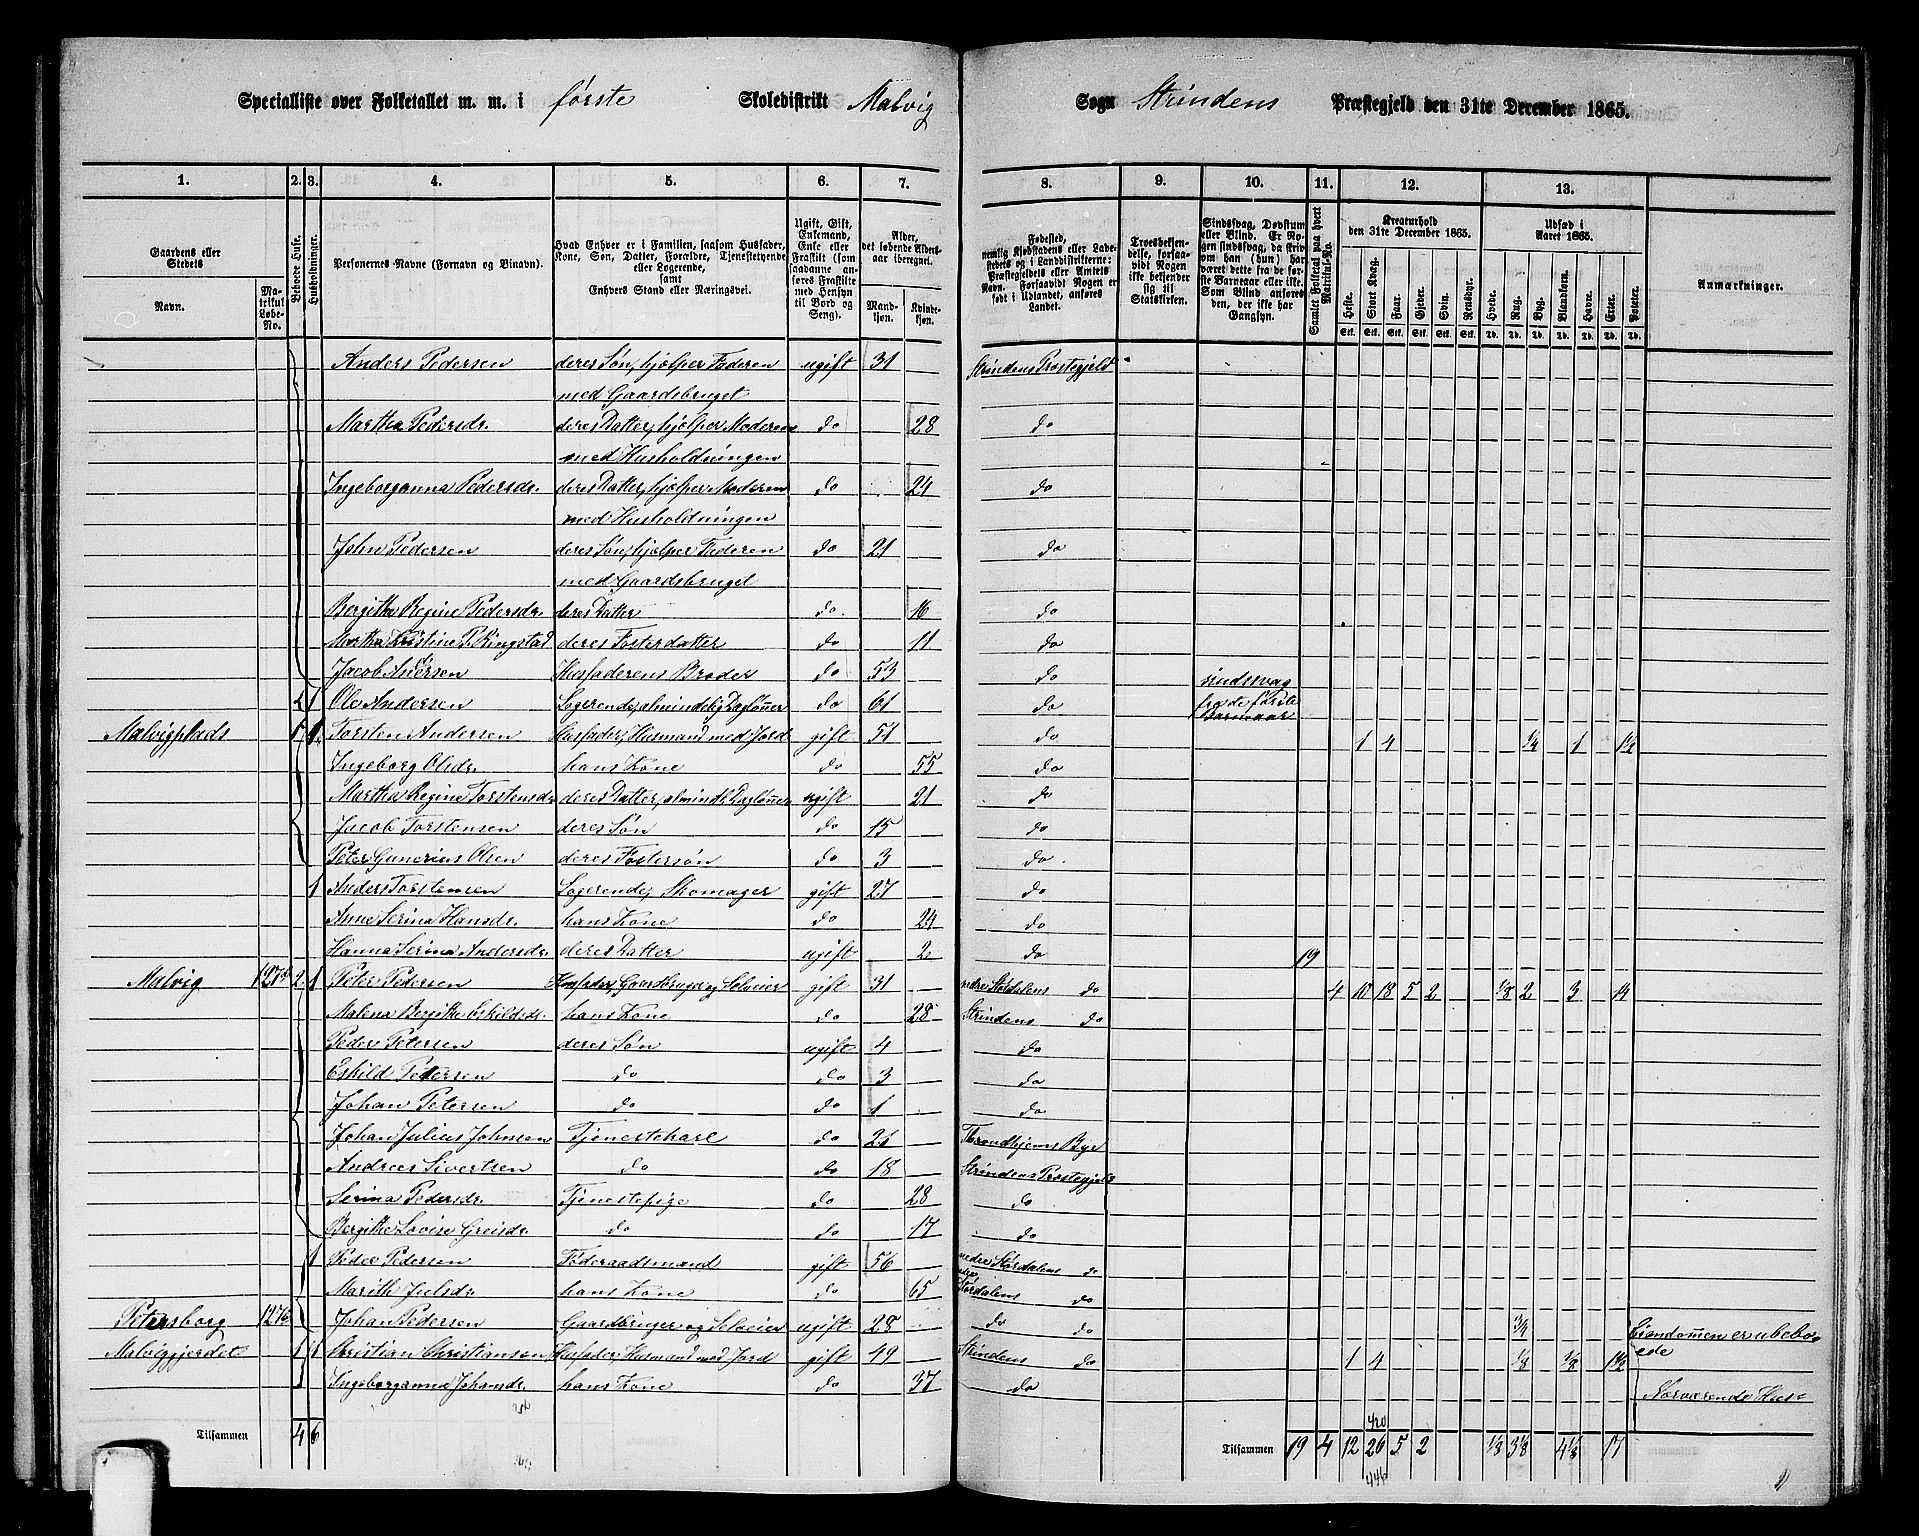 Specialliste over Folketallet m. m. i første Skoledistrikt Malvig Sogn Strindens Præstegjeld den 31te December 1865.
1. 2. 3. 4. 5. 6. 7. 8. 9. 10. 11. 12. 13.
Gaardens eller Stedets Navn. Matrikul Løbe-No.
Beboede Huse. Husholdninger.
Personernes Navne (Fornavn og Binavn).
Hvad Enhver er i Familien, saasom Husfader, Kone, Søn, Datter, Forældre, Tjenestetyende eller Logerende, samt Enhvers Stand eller Næringsvei.
Ugift, Gift, Enkemand, Enke eller Fraskilt (som saadanne anføres Fraskilte med Hensyn til Bord og Seng).
Alder, det løbende Aldersaar iberegnet. Mandkjøn. Kvindekjøn.
Fødested, nemlig Kjøbstadens eller Ladestedets eller i Landdistrikterne: Præstegjeldets eller Amtets Navn. Forsaavidt Nogen er født i Udlandet, anføres Landet.
Troesbekjendelse, forsaavidt Nogen ikke bekjender sig til Statskirken.
Sindssvag, Døvstum eller Blind. Er Nogen sindssvag, da skrives om han (hun) har været dette fra de første Barneaar eller ikke. Som Blind anføres den, der ikke har Gangsyn.
Samlet Folketal paa hvert Matrikul-No.
Kreaturhold den 31te December 1865. Heste. Stort Kvæg. Faar. Gjeder. Svin. Rensdyr.
Udsæd i Aaret 1865. Hvede. Rug. Byg. Blandkorn. Havre. Erter. Poteter.
Anmærkninger.
Anders Pedersen deres Søn, hjelper Faderen ugift 31 Strindens Præstegjeld
med Gaardsbruget
Martha Pedersdr. deres Datter, hjelper Moderen do 28 do
med Husholdningen
Ingeborganna Pedersdr. deres Datter, hjelper Moderen do 24 do
med Husholdningen
John Pedersen deres Søn, hjelper Faderen do 21 do
med Gaardsbruget
Bergitha Regine Pedersdr. deres Datter do 16 do
Martha Kristine P. Ringstad deres Fosterdatter do 11 do
Jacob Andersen Husfaderens Broder do 53 do sindssvag
2 1 Ole Andersen Logerende, almindelig Dagløner do 61 do fra de første
Barneaar
Malvigplads 1 1 Torsten Andersen Husfader, Husmand med Jord gift 51 do 1 4 1/4 1 1½
Ingeborg Olsdr. hans Kone do 55 do
Martha Regine Torstensdr. deres Datter, almindl. Dagløner ugift 21 do
Jacob Torstensen deres Søn do 15 do
Peter Gunerius Olsen deres Fostersøn do 3 do
1 Anders Torstensen Logerende, Skomager gift 27 do
Anne Serina Hansdr. hans Kone do 24 do
Hanna Serina Andersdr. deres Datter ugift 2 do 19
Malvig 127b 2 1 Peter Pedersen Husfader, Gaardbruger og Selveier gift 31 nedre Stördalens do 4 10 18 5 2 1/8 2 3 14
Malena Bergitha Eskildsdr. hans Kone do 28 Strindens do
Peder Petersen deres Søn ugift 4 do
Eskild Pedersen do do 3 do
Johan Petersen do do 1 do
Johan Julius Johnsen Tjenestekarl do 25 Throndhjems Bye
Andreas Sivertsen do do 18 Strindens Præstegjeld
Serina Pedersdr. Tjenestepige do 28 do
Bergitha Lovise Greisdr. do do 17 do
1 Peder Pedersen Föderaadsmand gift 56 nedre Stördalens do
Marith Julsdr. hans Kone do 65 nedre Stördalens do
Petersborg 127c Johan Pedersen Gaardbruger og Selveier ugift 28 do do 3/4 Eiendommen er ubeboede
Malviggjerdet 1 1 Christian Christiansen Husfader, Husmand med Jord gift 49 Strindens do 1 4 1/8 1/8 1½
Ingeborganna Johansdr. hans Kone do 37 do Nærværende Hus-
Tilsammen 4 6 Tilsammen 19 4 12 26 5 2 1/8 3⅛ 4⅛ 17
446